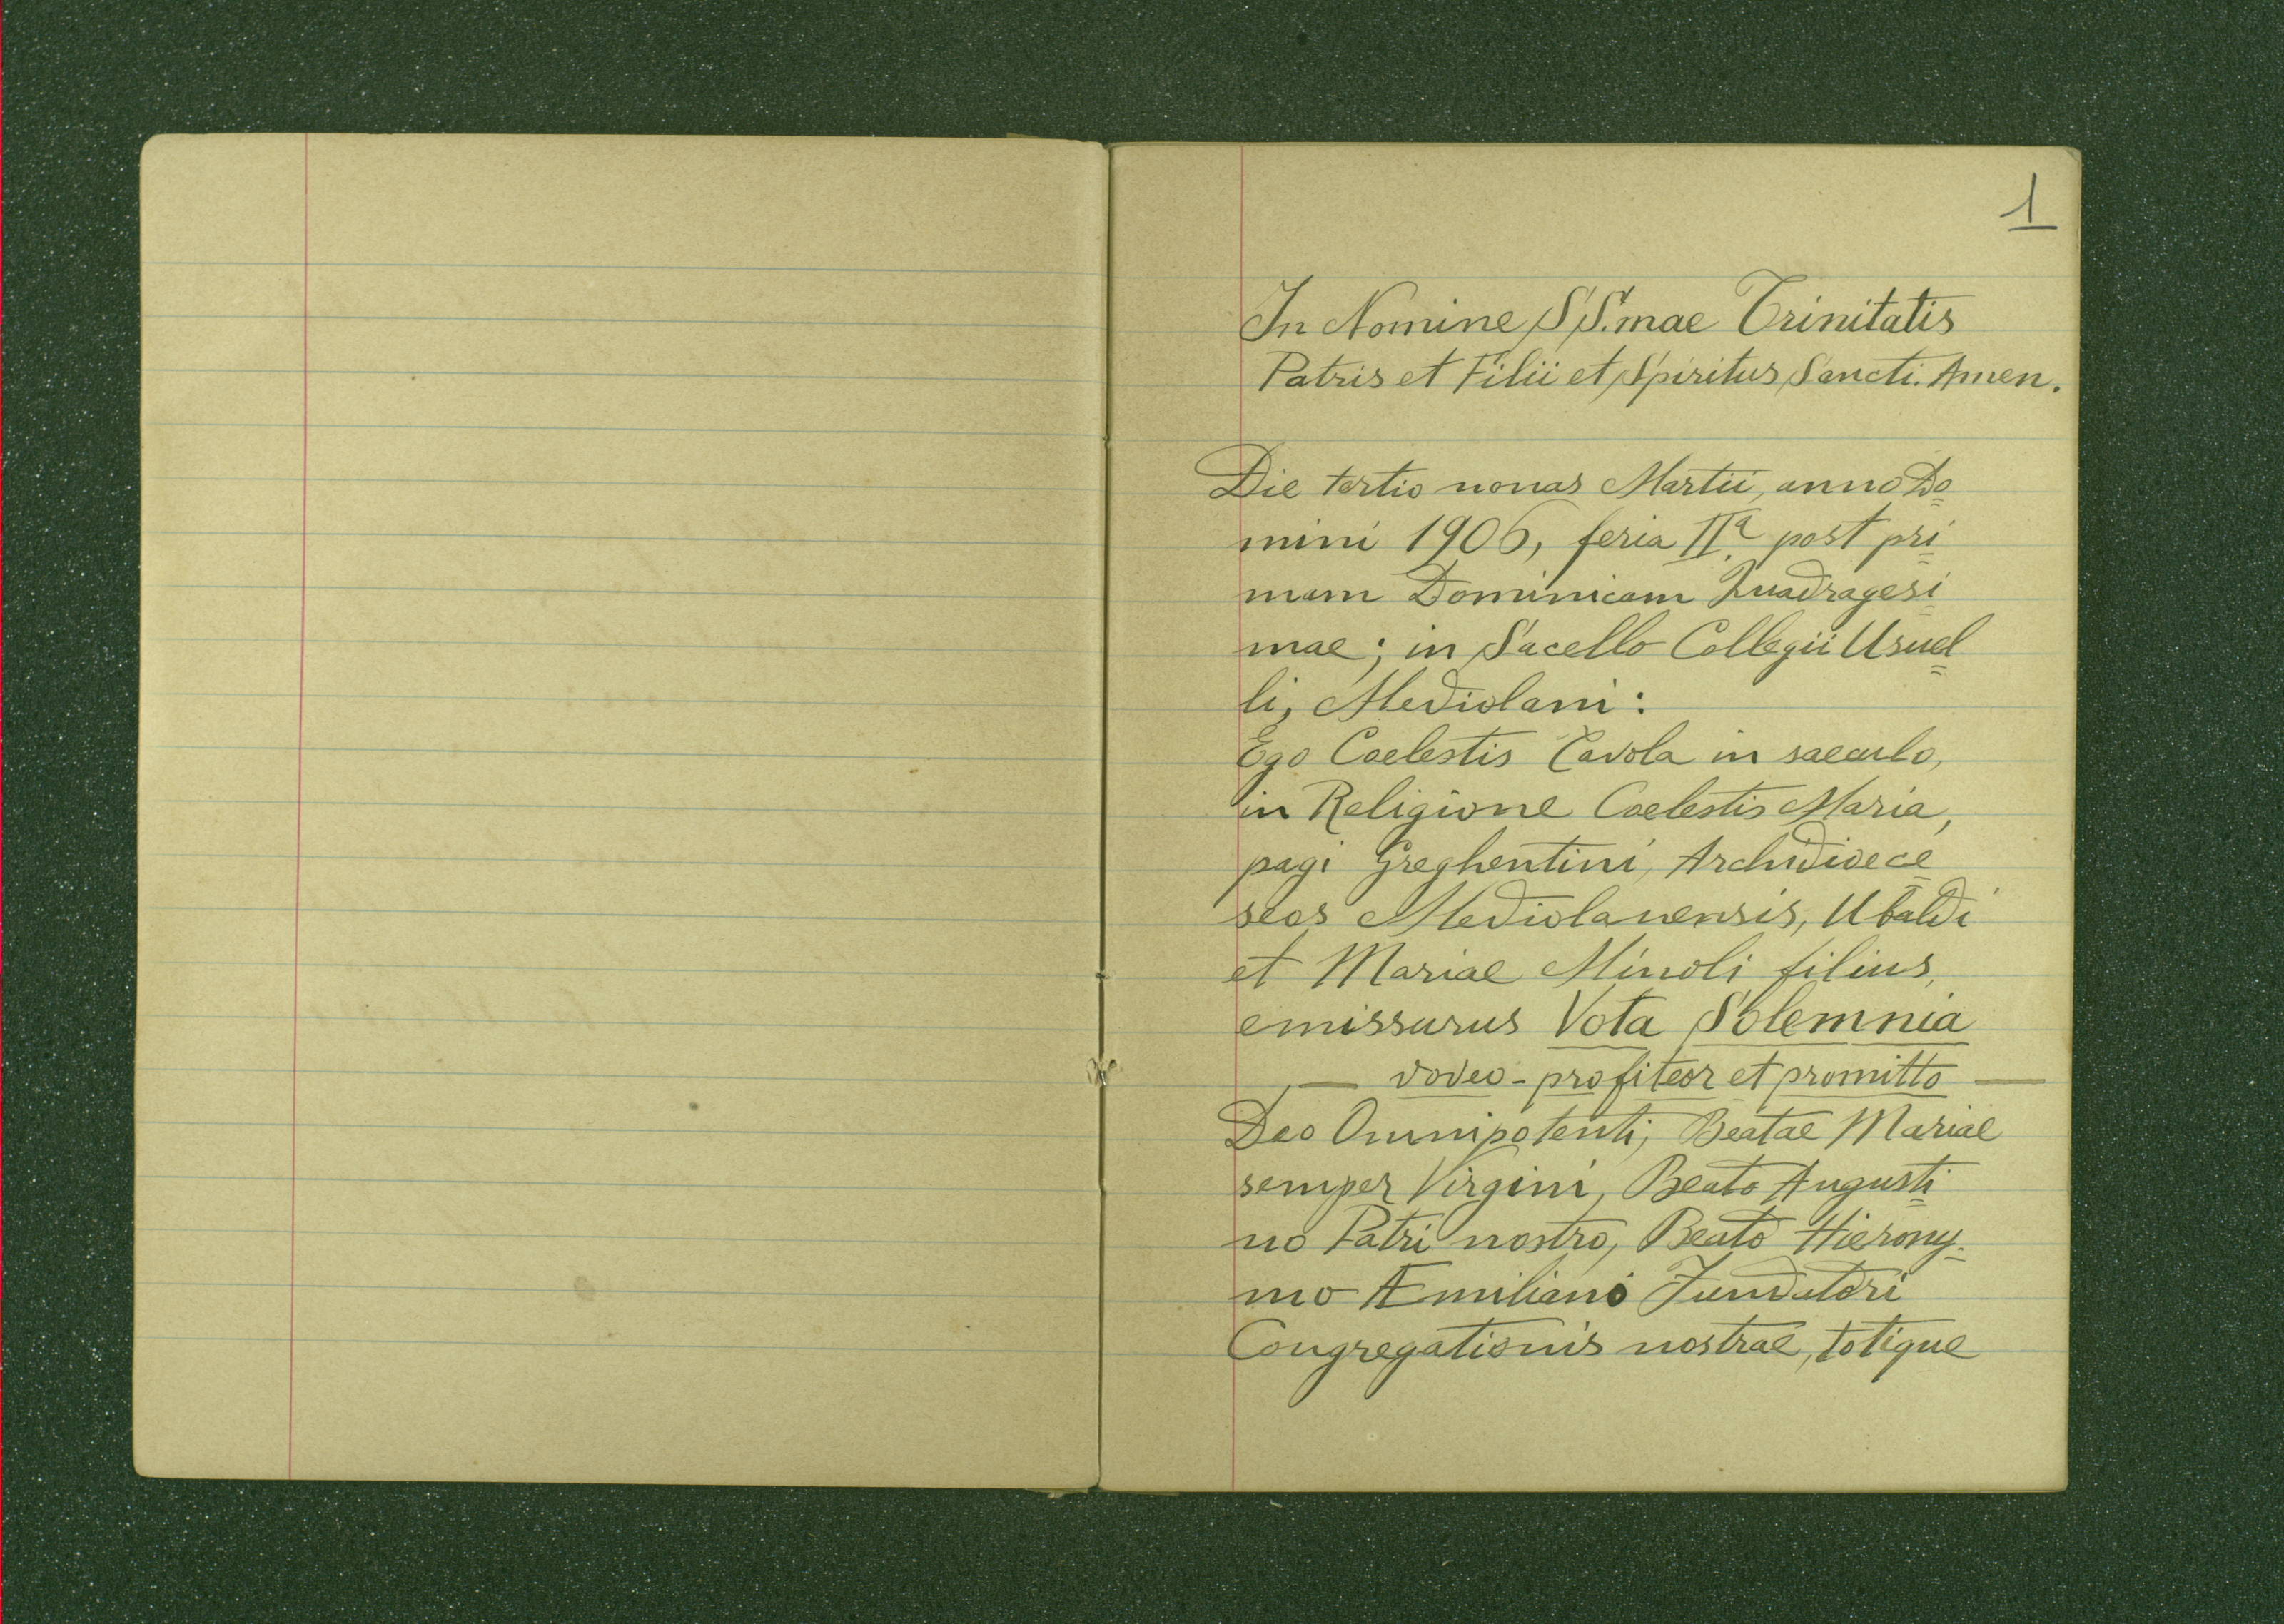 1
In Nomine SS.mae Trinitatis
Patris et Filii et Spiritus Sancti. Amen.
Die tertio nonas Martii, anno Do=
mini 1906, feria IIª post pri=
mam Dominicam Quadragesi=
mae; in Sacello Collegii Usuel=
li, Mediolani:
Ego Coelestis Tavola in saeculo,
in Religione Coelestis Maria,
pagi Greghentini, Archidioece=
seos Mediolanensis, Ubaldi
et Mariae Minoli filius,
emissurus Vota Solemnia
— voveo - profiteor et promitto —
Deo Omnipotenti, Beatae Mariae
semper Virgini, Beato Augusti=
no Patri nostro, Beato Hierony=
mo Æmiliano Fundatori
Congregationis nostrae, totique